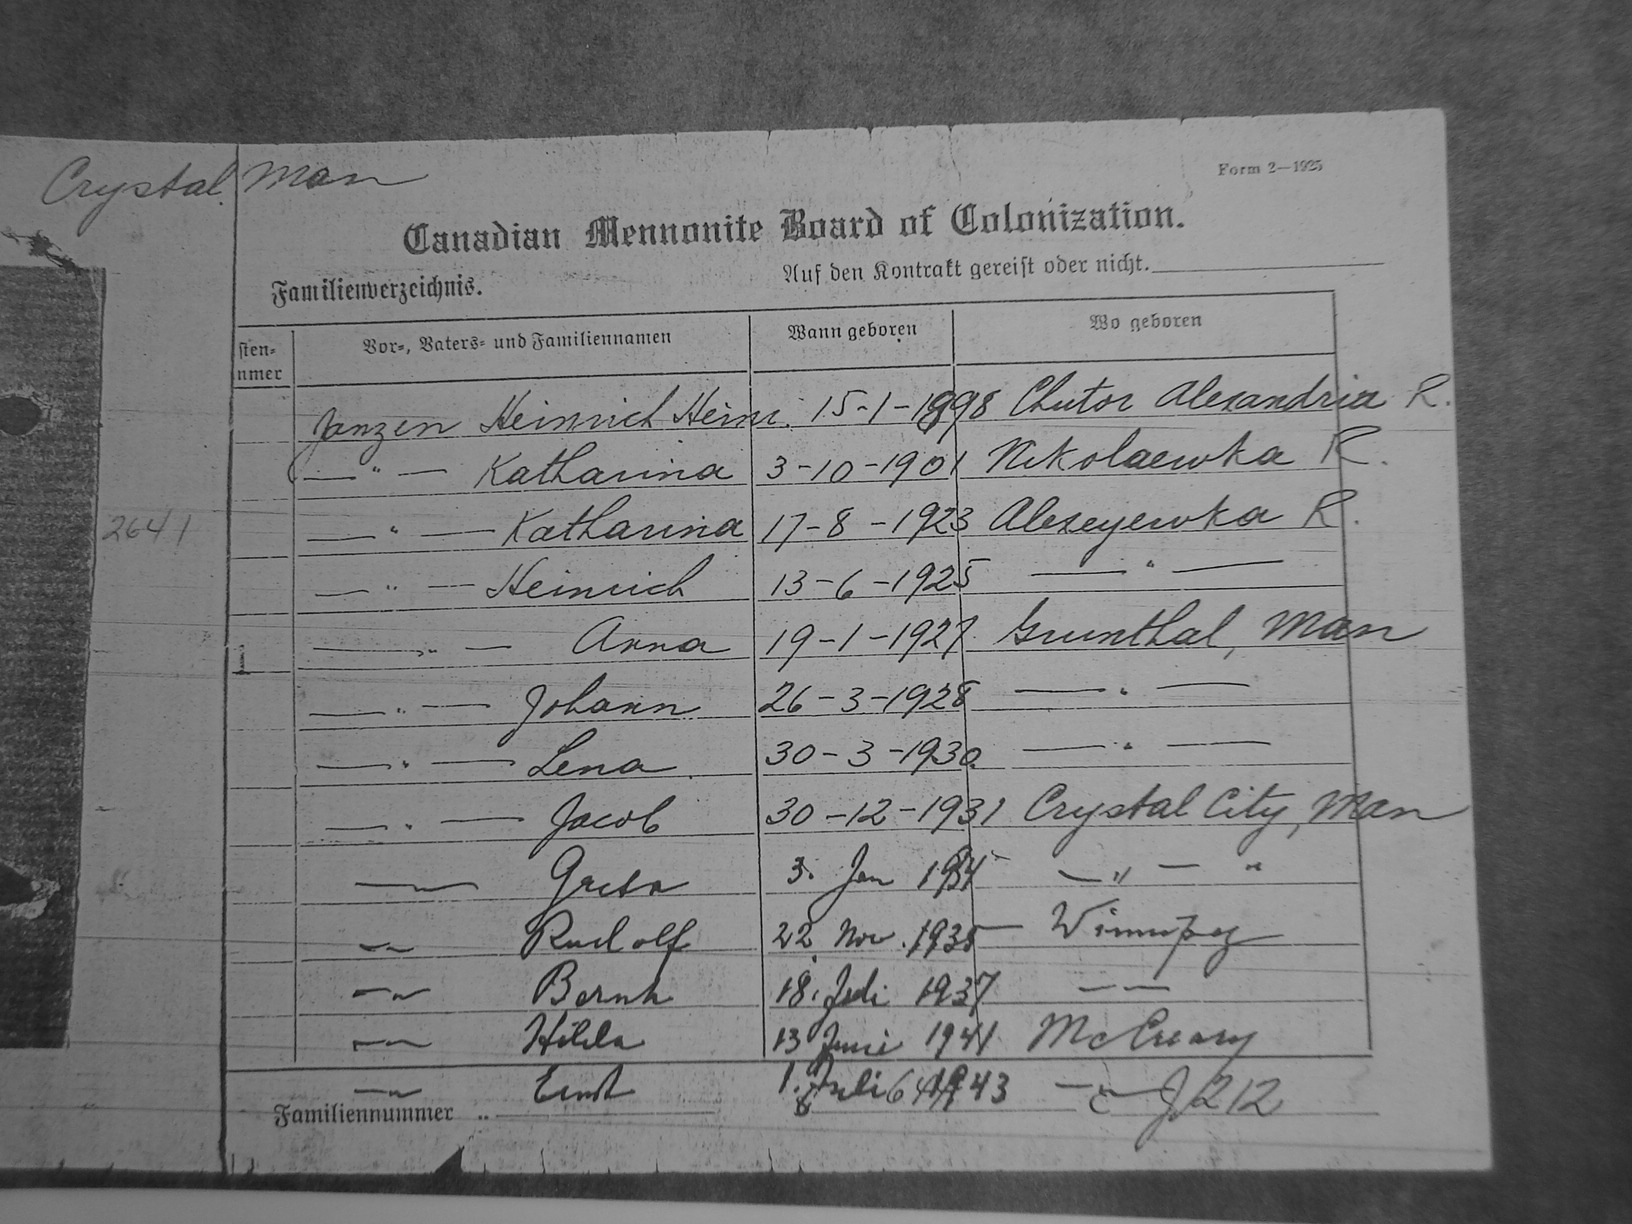 Crystal. Man
Form 2—1925
Canadian Mennonite Board of Colonization.
Familienverzeichnis.
Auf den Kontrakt gereist oder nicht.
sten-
nmer
Vor-, Vaters- und Familiennamen
Wann geboren
Wo geboren
Janzen Heinrich Heinr. 15-1-1898 Chutor Alexandria R.
— " — Katharina 3-10-1901 Nikolaewka R.
2641 — " — Katharina 17-8-1923 Alexeyewka R.
— " — Heinrich 13-6-1925 — " —
1 — " — Anna 19-1-1927. Grunthal, Man
— " — Johann 26-3-1928 — " —
— " — Lena 30-3-1930. — " —
— " — Jacob 30-12-1931 Crystal City, Man
— " — Greta 3. Jan 1934 — " — "
— " — Rudolf 22 Nov. 1935 — Winnipeg
— " — Bernh 18. Juli 1937 — " —
— " — Hilda 13 Juni 1941 McCreary
— " — Ernst 1. Juli 1943 — " — J 212
Familiennummer ..